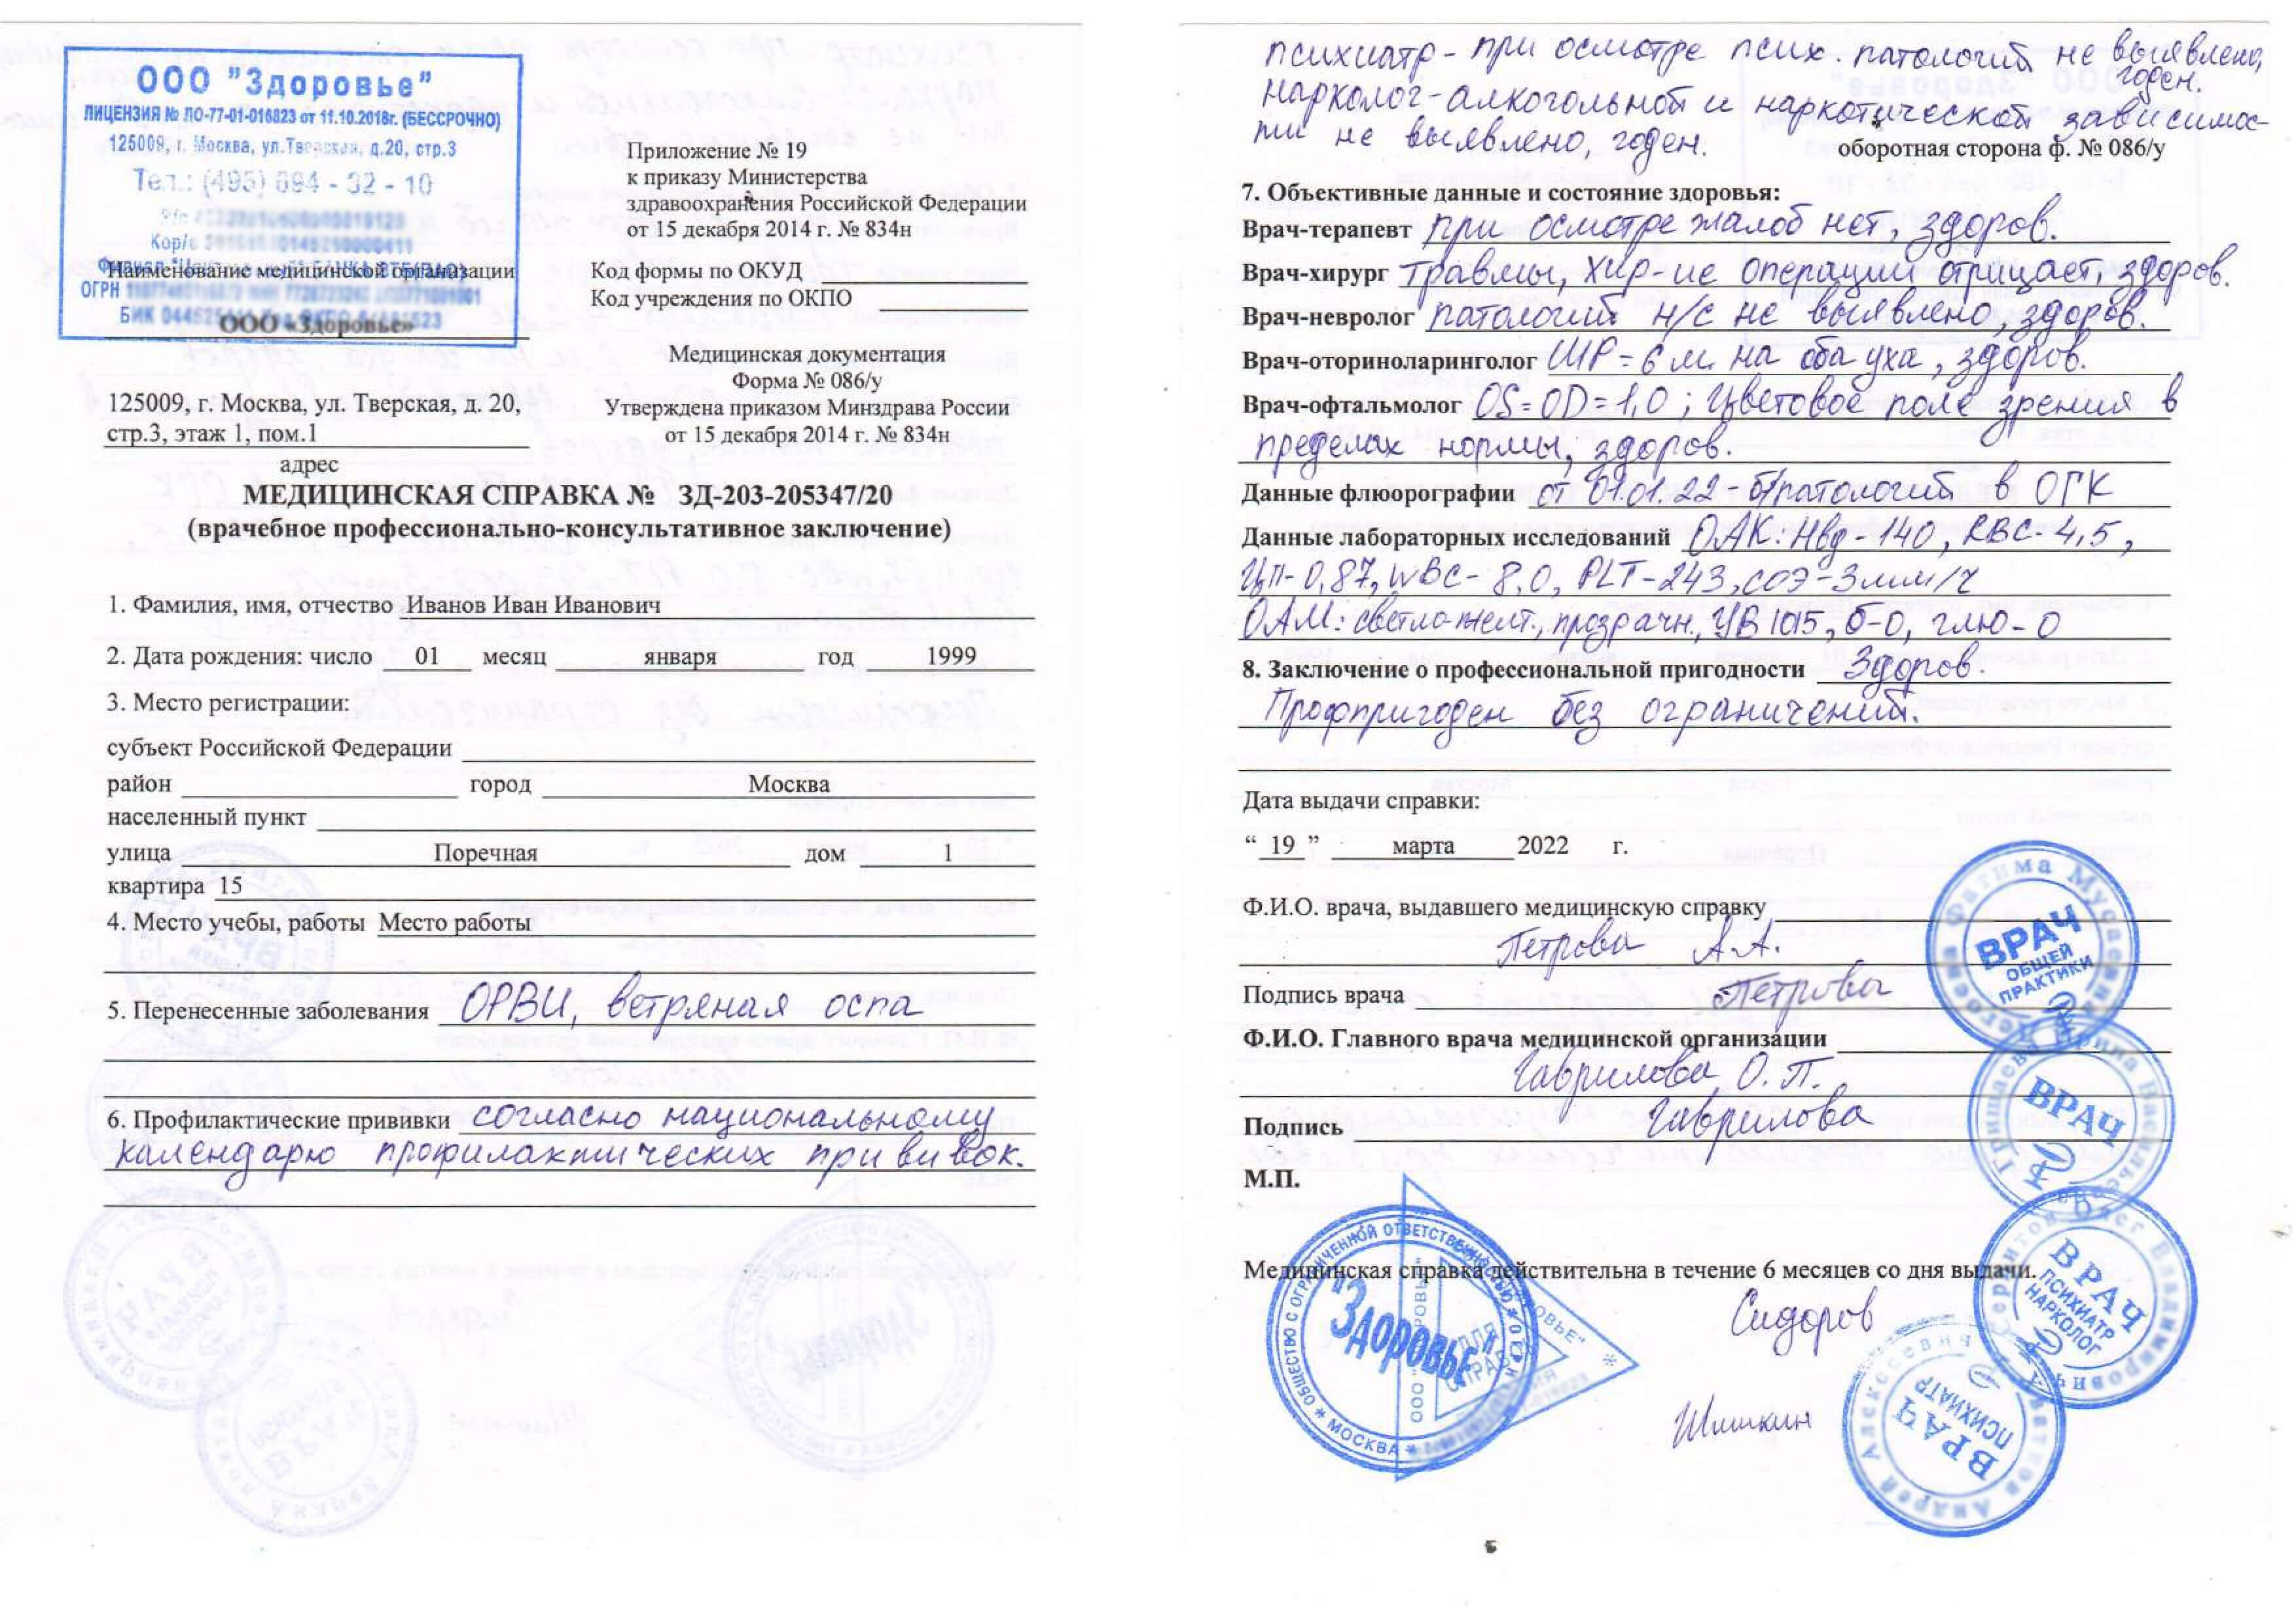 ООО "Здоровье"
ЛИЦЕНЗИЯ № ЛО-77-01-016823 от 11.10.2018г. (БЕССРОЧНО)
125009, г. Москва, ул.Тверская, д.20, стр.3
Тел.: (495) 694 - 32 - 10
Кор/с
ОГРН
БИК
Наименование медицинской организации
ООО «Здоровье»
Приложение № 19
к приказу Министерства
здравоохранения Российской Федерации
от 15 декабря 2014 г. № 834н
Код формы по ОКУД
Код учреждения по ОКПО
Медицинская документация
Форма № 086/у
Утверждена приказом Минздрава России
от 15 декабря 2014 г. № 834н
125009, г. Москва, ул. Тверская, д. 20,
стр.3, этаж 1, пом.1
адрес
МЕДИЦИНСКАЯ СПРАВКА № ЗД-203-205347/20
(врачебное профессионально-консультативное заключение)
1. Фамилия, имя, отчество Иванов Иван Иванович
2. Дата рождения: число 01 месяц января год 1999
3. Место регистрации:
субъект Российской Федерации
район город Москва
населенный пункт
улица Поречная дом 1
квартира 15
4. Место учебы, работы Место работы
5. Перенесенные заболевания ОРВИ, ветряная оспа
6. Профилактические прививки согласно национальному
календарю профилактических прививок.
психиатр - при осмотре псих. патологий не выявлено,
годен.
нарколог - алкогольной и наркотической зависимос-
ти не выявлено, годен.
оборотная сторона ф. № 086/у
7. Объективные данные и состояние здоровья:
Врач-терапевт при осмотре жалоб нет, здоров.
Врач-хирург травмы, хир-ие операции отрицает, здоров.
Врач-невролог патологий н/с не выявлено, здоров.
Врач-оториноларинголог ШР = 6 м. на оба уха, здоров.
Врач-офтальмолог OS = OD = 1,0 ; Цветовое поле зрения в
пределах нормы, здоров.
Данные флюорографии от 01.01.22 - б/патологий в ОГК
Данные лабораторных исследований ОАК: Hbg - 140, RBC - 4,5,
ЦП - 0,87, WBC - 8,0, PLT - 243, СОЭ - 3 мм/ч
ОАМ: светло-желт., прозрачн., УВ 1015, б-0, глю - 0
8. Заключение о профессиональной пригодности Здоров.
Профпригоден без ограничений.
Дата выдачи справки:
" 19 " марта 2022 г.
Ф.И.О. врача, выдавшего медицинскую справку
Петрова А.А.
Подпись врача Петрова
Ф.И.О. Главного врача медицинской организации
Гаврилова О.П.
Подпись Гаврилова
М.П.
Медицинская справка действительна в течение 6 месяцев со дня выдачи.
Сидоров
Шишкин
ОБЩЕСТВО С ОГРАНИЧЕННОЙ ОТВЕТСТВЕННОСТЬЮ
"ЗДОРОВЬЕ"
* МОСКВА *
ДЛЯ
СПРАВОК
Фатима Мусаевна
ВРАЧ
ОБЩЕЙ
ПРАКТИКИ
ВРАЧ
Олег Владимирович
ВРАЧ
ПСИХИАТР
НАРКОЛОГ
Андрей Алексеевич
ВРАЧ
ПСИХИАТР